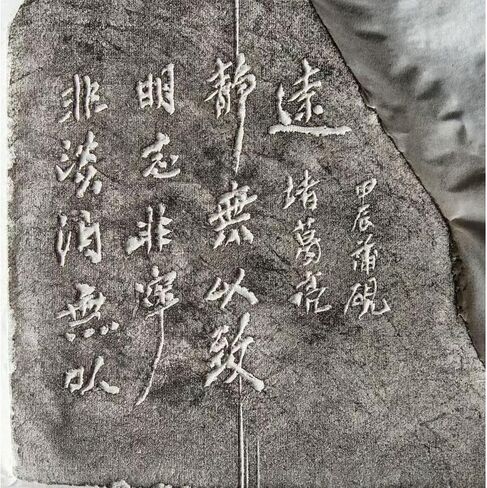 非淡泊無以
明志非寧
静無以致
遠
諸葛亮
甲辰蒲硯